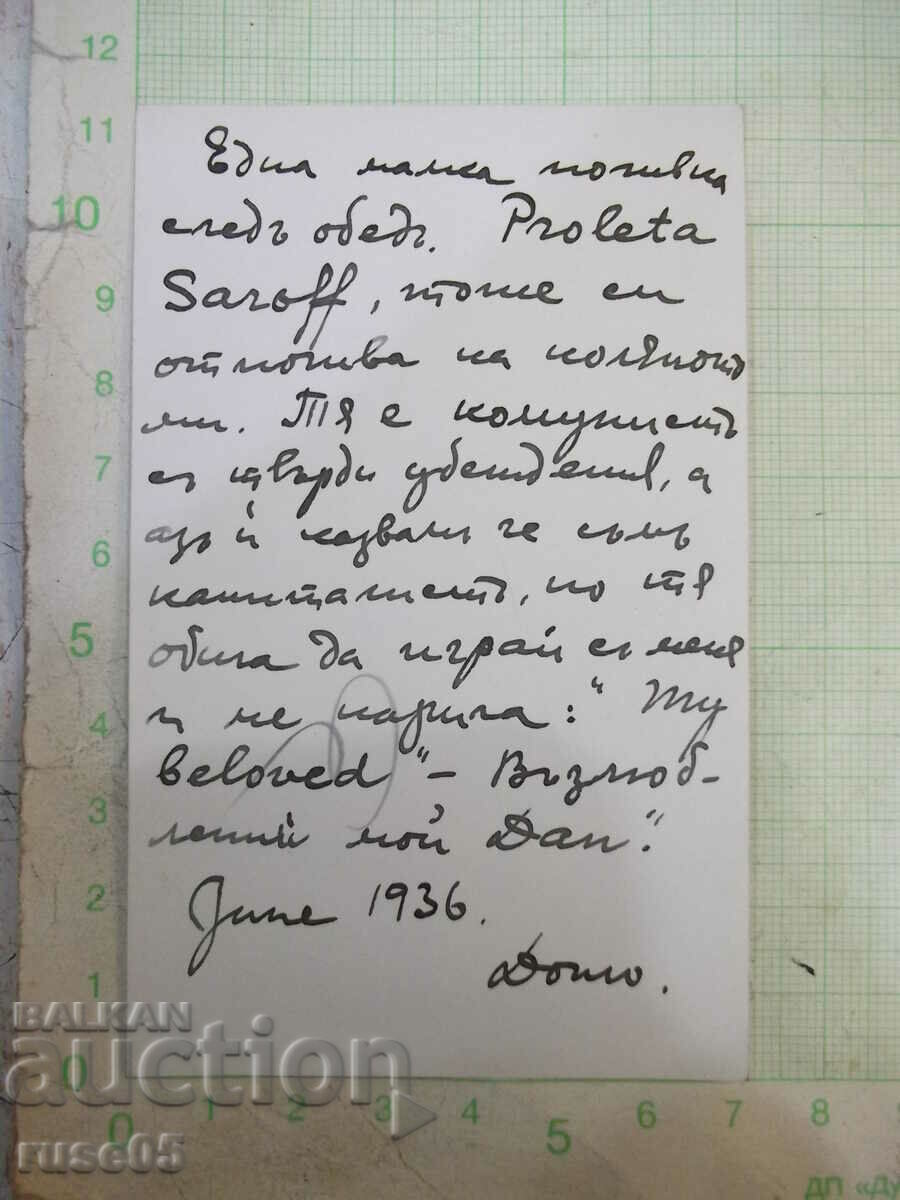 Една малка почивка
следъ обедъ. Proleta
Saroff, тоже си
отпочива на колѣното
ми. Тя е комунистъ
съ твърди убеждения, а
азъ ѝ казвамъ че съмъ
капиталистъ, но тя
обича да играй съ мене
и ме нарича: "My
beloved" – Възлюб-
лений мой Дан".
June 1936.
12
11
10
9
8
7
6
5
4
3
2
1
0
0 1 2 3 4 5 6 7 8 9
BALKAN
auction
ruse05
ДП «Ду